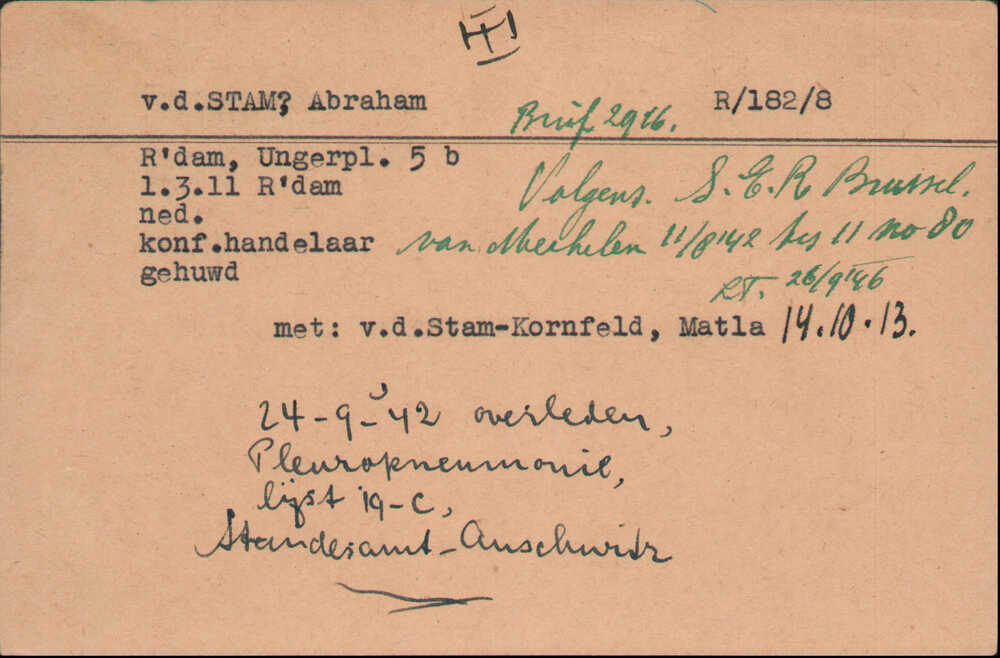 v.d.STAM? Abraham
R/182/8
Brief 2916.
R'dam, Ungerpl. 5 b
1.3.11 R'dam
Volgens. S.E.R Brussel.
ned.
konf.handelaar
van Mechelen 11/8'42 bis 11 no 80
gehuwd
26/9'46
met: v.d.Stam-Kornfeld, Matla 14.10.13.
24-9-'42 overleden,
Pleuropneumonie,
lijst 19-C,
Standesamt-Auschwitz